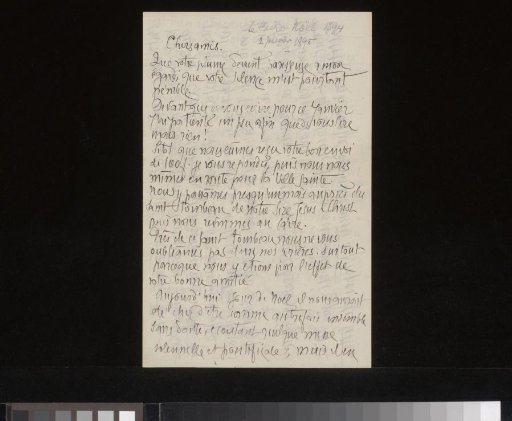 le Caire Noël 1894
2 janvier 1895
Chers amis.
Que votre plume devient paresseuse à mon
égard que votre silence m'est pourtant
pénible.
Avant que je vous écrive pour ce Janvier
j'ai patienté un peu afin que vous
mais rien!
Sitôt que nous eûmes reçu votre bon envoi
de 100 f. je vous répondis, puis nous nous
mîmes en route pour la Ville Sainte
nous y passâmes presqu'un mois auprès du
Saint Tombeau de Notre Sire Jésus Christ
puis nous revînmes au Caire.
Près de ce Saint Tombeau nous ne vous
oubliâmes pas dans nos prières. Surtout
parceque nous y étions par l'effet de
votre bonne amitié
Aujourd'hui Jour de Noël il nous aurait
été cher d'être comme autrefois ensemble
sans doute écoutant quelque messe
solennelle et pontificale; mais